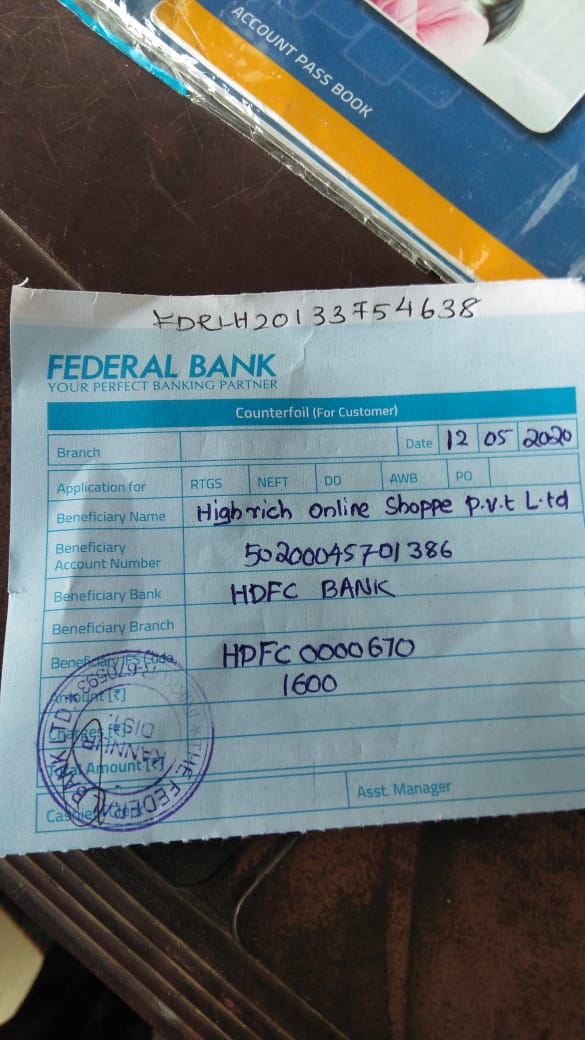 ACCOUNT PASS BOOK
FDRLH20133754638
FEDERAL BANK
YOUR PERFECT BANKING PARTNER
Counterfoil (For Customer)
Branch Date 12 05 2020
Application for RTGS NEFT DD AWB PO
Beneficiary Name Highrich online Shoppe p.v.t L.td
Beneficiary
Account Number 50200045701386
Beneficiary Bank HDFC BANK
Beneficiary Branch
Beneficiary IFS Code HDFC0000670
Amount [₹] 1600
Charges [₹]
Total Amount [₹]
Asst. Manager
THE FEDERAL BANK LTD
KANNUR
DIS
670593